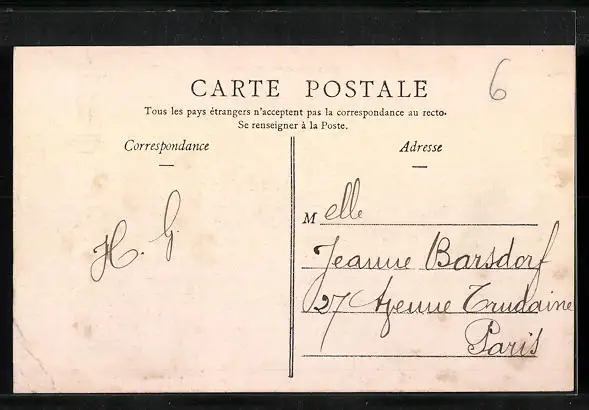 6
CARTE POSTALE
Tous les pays étrangers n'acceptent pas la correspondance au recto.
Se renseigner à la Poste.
Correspondance
Adresse
H. G.
Melle
Jeanne Barsdorf
27 Avenue Trudaine
Paris